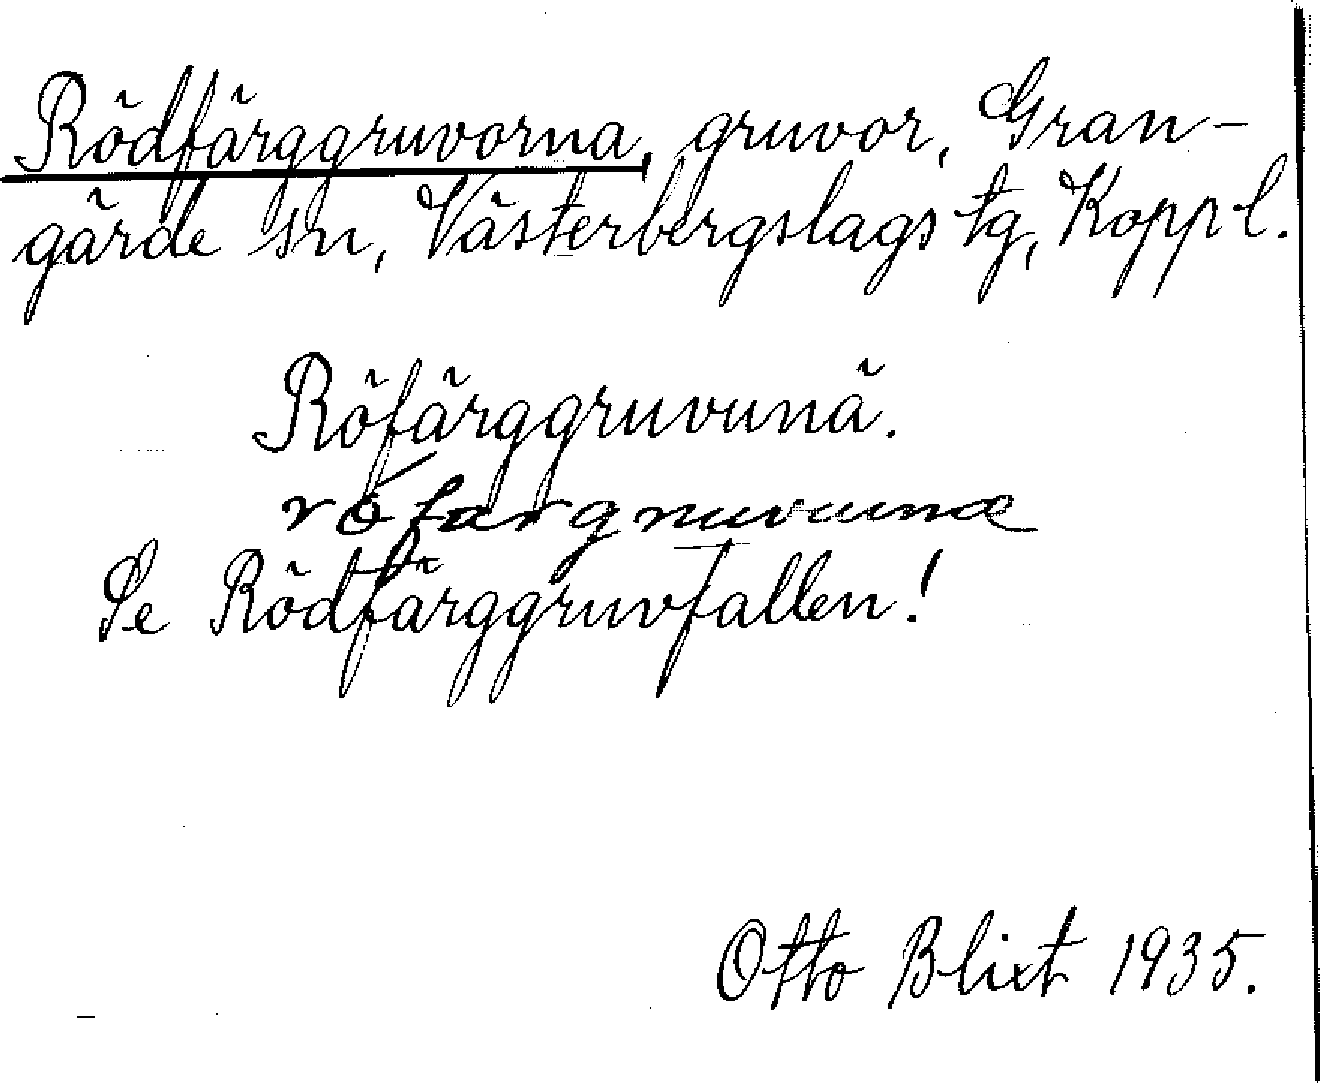 Rödfärggruvorna, gruvor, Gran-
gärde sn, Västerbergslags tg, Koppl.
Röfärggruvunä.
Se Rödfärggruvfallen!
Otto Blixt 1935.